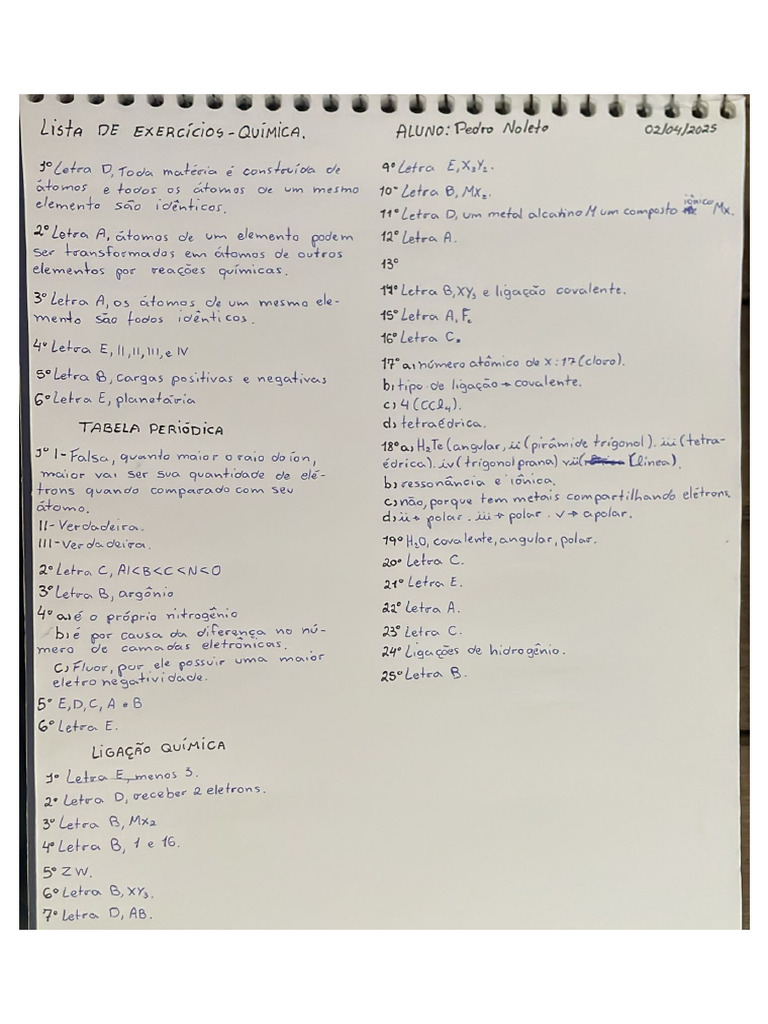 LISTA DE EXERCÍCIOS - QUÍMICA.
ALUNO: Pedro Noleto
02/04/2025
1º Letra D, Toda matéria é construída de
átomos e todos os átomos de um mesmo
elemento são idênticos.
2º Letra A, átomos de um elemento podem
ser transformados em átomos de outros
elementos por reações químicas.
3º Letra A, os átomos de um mesmo ele-
mento são todos idênticos.
4º Letra E, II, II, III, e IV
5º Letra B, cargas positivas e negativas
6º Letra E, planetária
TABELA PERIÓDICA
1º I - Falsa, quanto maior o raio do íon,
maior vai ser sua quantidade de elé-
trons quando comparado com seu
átomo.
II - Verdadeira.
III - Verdadeira.
2º Letra C, Al<B<C<N<O
3º Letra B, argônio
4º a) é o próprio nitrogênio
b) é por causa da diferença no nú-
mero de camadas eletrônicas.
c) Fluor, por ele possuir uma maior
eletronegatividade.
5º E, D, C, A e B
6º Letra E.
LIGAÇÃO QUÍMICA
1º Letra E, menos 3.
2º Letra D, receber 2 eletrons.
3º Letra B, Mx2
4º Letra B, 1 e 16.
5º ZW.
6º Letra B, XY3.
7º Letra D, AB.
9º Letra E, X2Y2.
10º Letra B, MX2.
11º Letra D, um metal alcalino M um composto iônico Mx.
12º Letra A.
13º
14º Letra B, XY3 e ligação covalente.
15º Letra A, F.
16º Letra C.
17º a) número atômico de x: 17 (cloro).
b) tipo de ligação → covalente.
c) 4 (CCl4).
d) tetraédrica.
18º a) H2Te (angular, ii (pirâmide trigonol). iii (tetra-
édrica). iv (trigonol prana) vii( (linea).
b) ressonância e iônica.
c) não, porque tem metais compartilhando elétrons.
d) ii → polar. iii → polar. v → apolar.
19º H2O, covalente, angular, polar.
20º Letra C.
21º Letra E.
22º Letra A.
23º Letra C.
24º Ligações de hidrogênio.
25º Letra B.